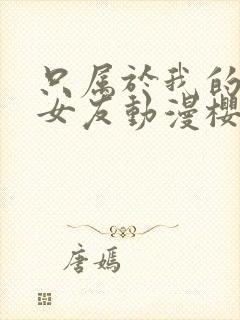 只属於我的
女友動漫櫻
唐嫣